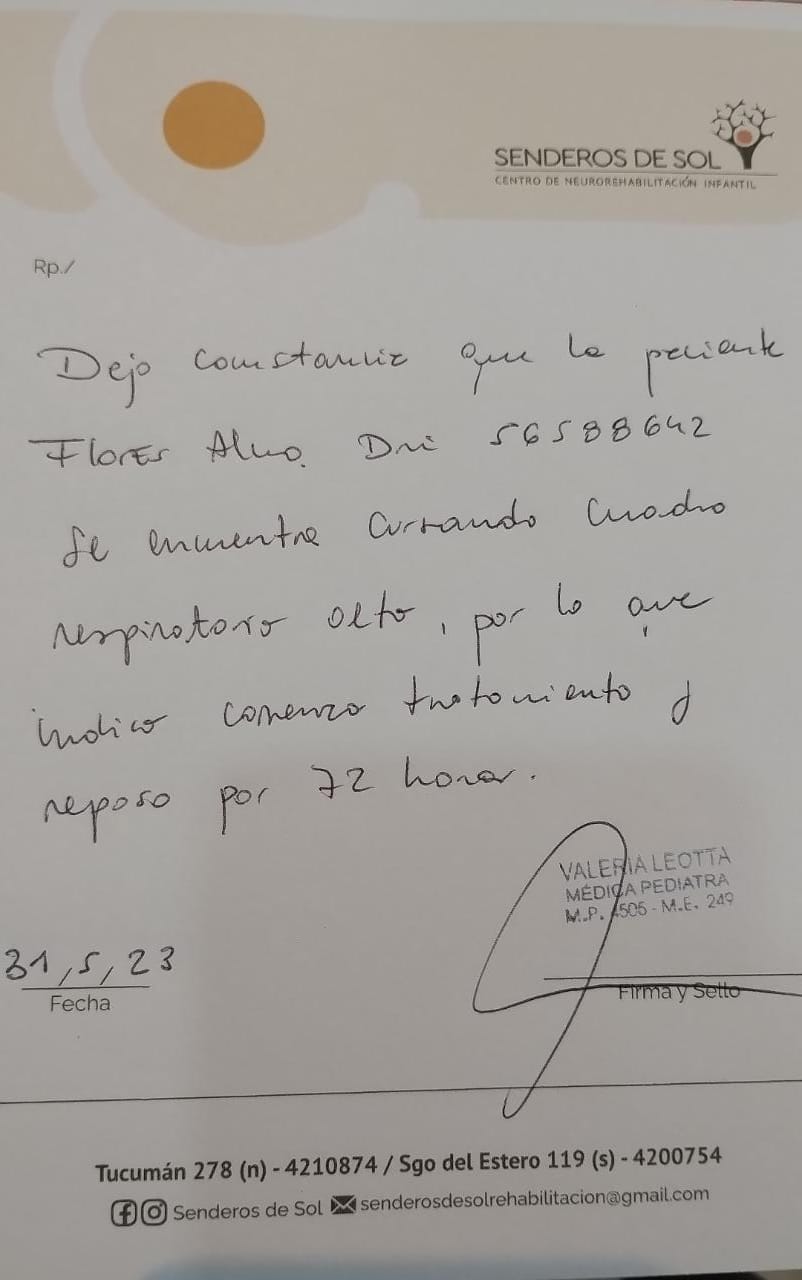 SENDEROS DE SOL
CENTRO DE NEUROREHABILITACIÓN INFANTIL
Rp./
Dejo constancia que la paciente
Flores Dni 56588642
Se encuentra cursando cuadro
respiratorio alto, por lo que
indico comenzo tratamiento y
reposo por 72 horas.
VALERIA LEOTTA
MÉDICA PEDIATRA
M.P. 4505 - M.E. 249
31,5,23
Fecha
Firma y Sello
Tucumán 278 (n) - 4210874 / Sgo del Estero 119 (s) - 4200754
Senderos de Sol senderosdesolrehabilitacion@gmail.com